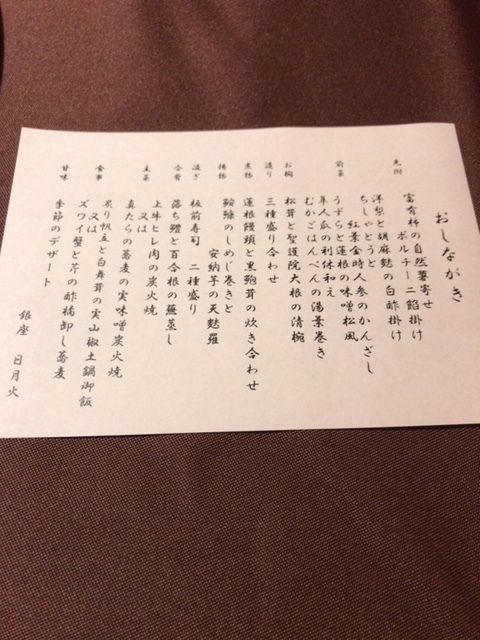 おしながき
先附
富有柿の自然薯寄せ
ポルチーニ餡掛け
洋梨と胡麻麩の白酢掛け
前菜
ちしゃとうと
紅葉金時人参のかんざし
うずらと蓮根の味噌松風
隼人瓜の利休和え
むかごはんぺんの湯葉巻き
お椀
松茸と聖護院大根の清椀
造り
三種盛り合わせ
煮物
蓮根饅頭と黒鮑茸の炊き合わせ
揚物
鮟鱇のしめじ巻きと
安納芋の天麩羅
凌ぎ
板前寿司 二種盛り
合肴
落ち鱧と百合根の蕪蒸し
主菜
上牛ヒレ肉の炭火焼
又は
真たらの蕎麦の実味噌炭火焼
食事
炙り帆立と白舞茸の実山椒土鍋御飯
又は
ズワイ蟹と芹の酢橘卸し蕎麦
甘味
季節のデザート
銀座 日月火